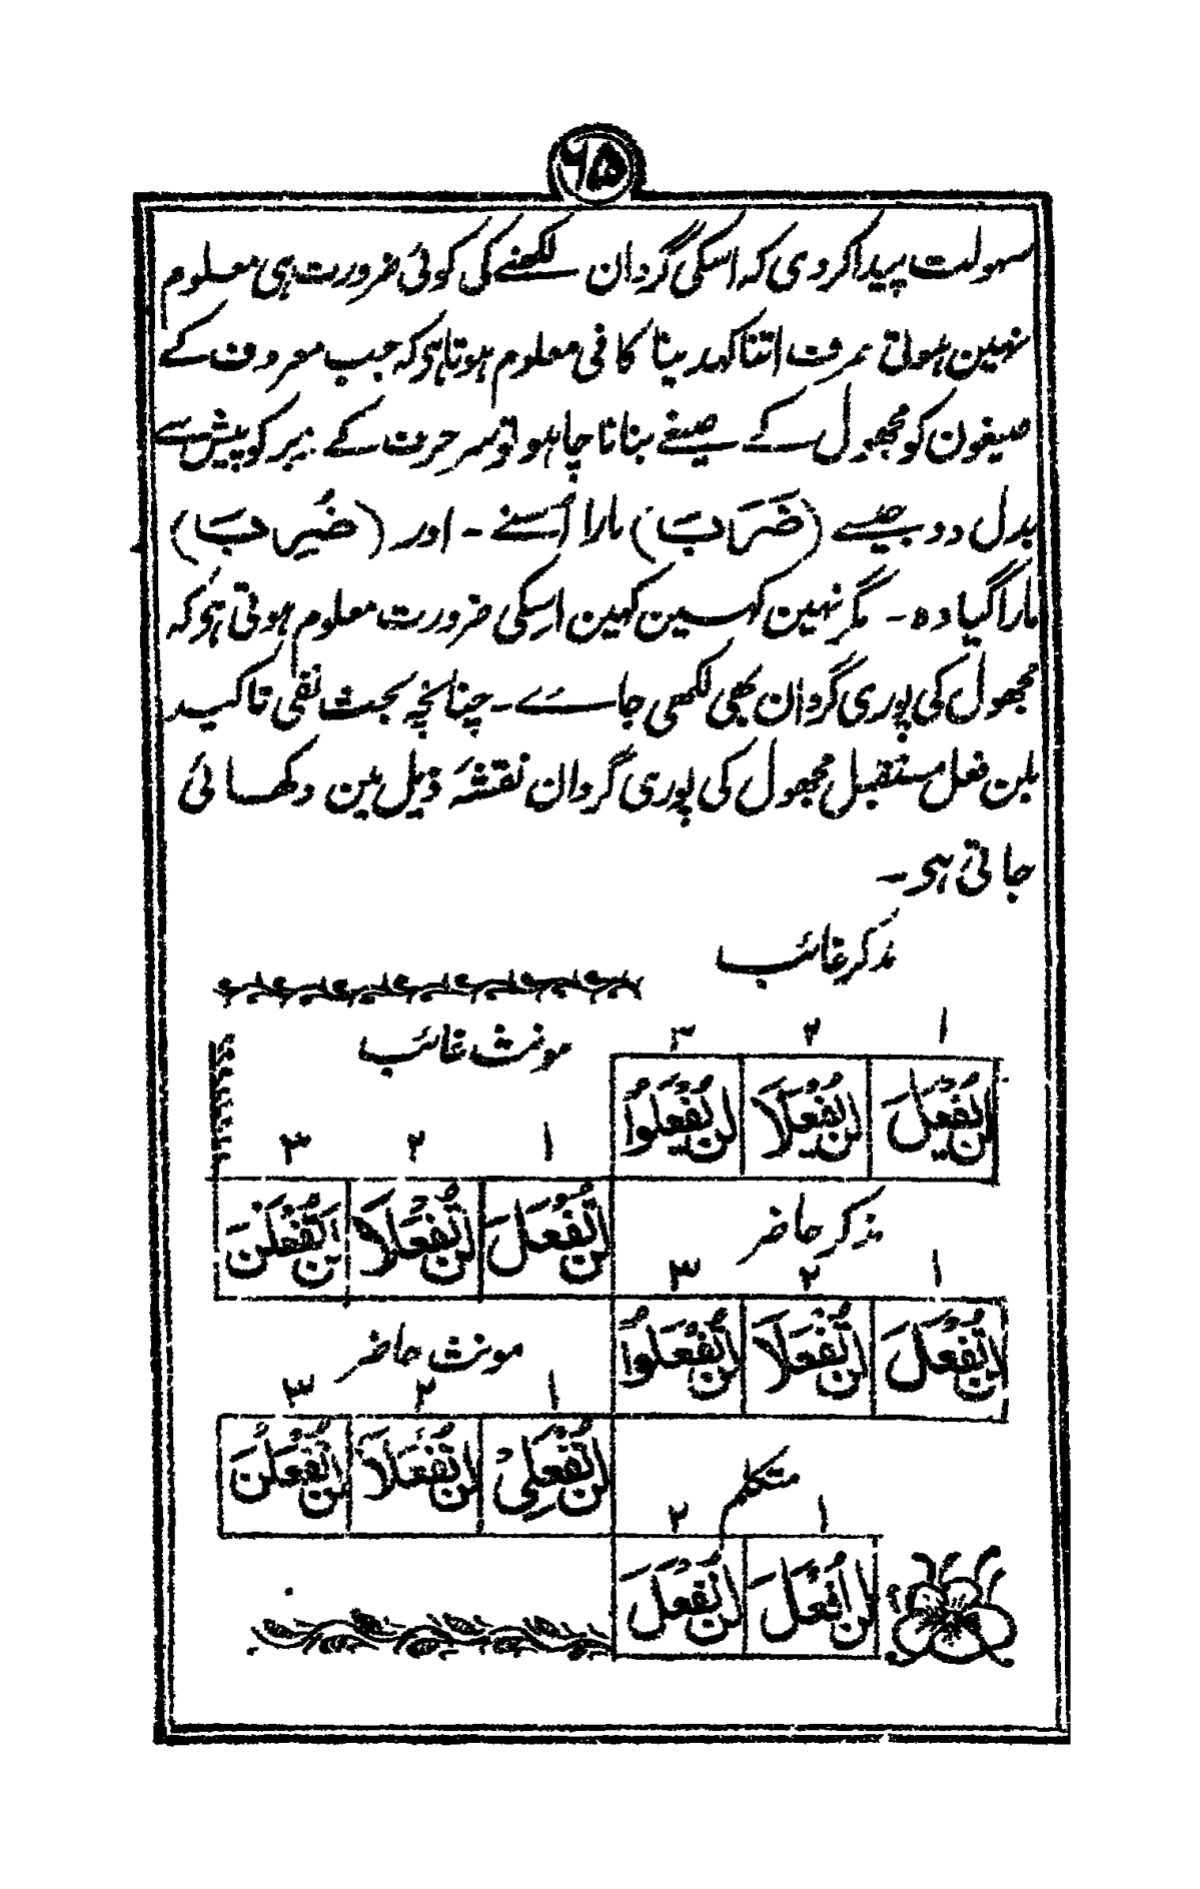 ۶۵
سہولت پیدا کردی کہ اسکی گردان لکھنے کی کوئی ضرورت ہی معلوم
نہین ہوتی صرف اتنا کہدینا کافی معلوم ہوتا ہو کہ جب معروف کے
صیغون کو مجھول کے صیغے بنانا چاہو تو سر حرف کے زبر کو پیش سے
بدل دو جیسے (ضَرَبَ) مارا اُسنے ۔ اور (ضُرِبَ)
مارا گیا وہ ۔ مگر نہین کہین کہین اسکی ضرورت معلوم ہوتی ہو کہ
مجھول کی پوری گردان بھی لکھی جاے ۔ چنانچہ بحث نفی تاکید
بلن فعل مستقبل مجھول کی پوری گردان نقشۂ ذیل مین دکھائی
جاتی ہو ۔
مذکر غائب
۱ ۲ ۳
لن یُفْعَلَ لن یُفْعَلَا لن یُفْعَلُوا
مونث غائب
۱ ۲ ۳
لن تُفْعَلَ لن تُفْعَلَا لن یُفْعَلْنَ
مذکر حاضر
۱ ۲ ۳
لن تُفْعَلَ لن تُفْعَلَا لن تُفْعَلُوا
مونث حاضر
۱ ۲ ۳
لن تُفْعَلِیْ لن تُفْعَلَا لن تُفْعَلْنَ
متکلم
۱ ۲
لن اُفْعَلَ لن نُفْعَلَ